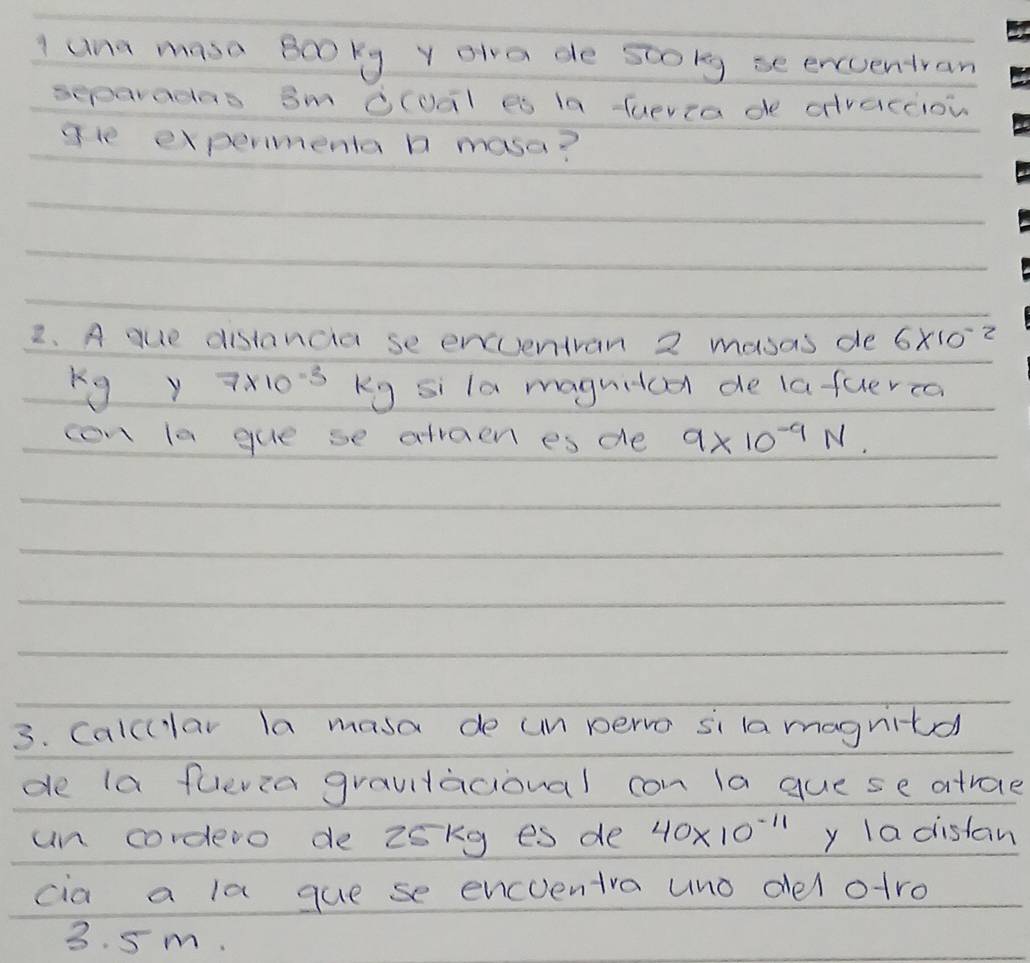 1 una masa 800 kg y otra de 500 kg se encuentran
separadas 3m ¿cuál es la fuerza de atracción
que experimenta la masa?
2. A que distancia se encuentran 2 masas de 6x10⁻²
kg y 7x10⁻³ kg si la magnitud de la fuerza
con la que se atraen es de 9x10⁻⁹ N.
3. Calcular la masa de un perro si la magnitud
de la fuerza gravitàcional con la que se atrae
un cordero de 25kg es de 40x10⁻¹¹ y la distan
cia a la que se encuentra uno del otro
3.5 m.